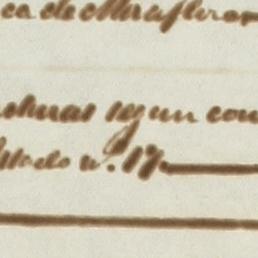 ca de Miraflores
chuas segun con
stado n.º 17